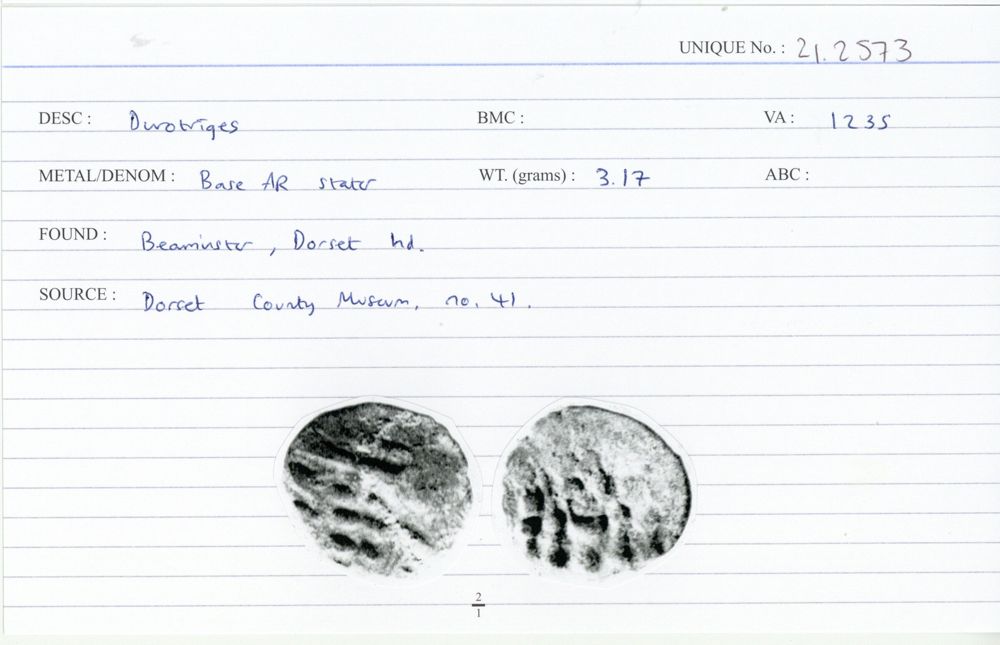 UNIQUE No. : 21.2573
DESC : Durotriges BMC : VA : 1235
METAL/DENOM : Base AR stater WT. (grams) : 3.17 ABC :
FOUND : Beaminster, Dorset hd.
SOURCE : Dorset County Museum, no. 41.
2
1